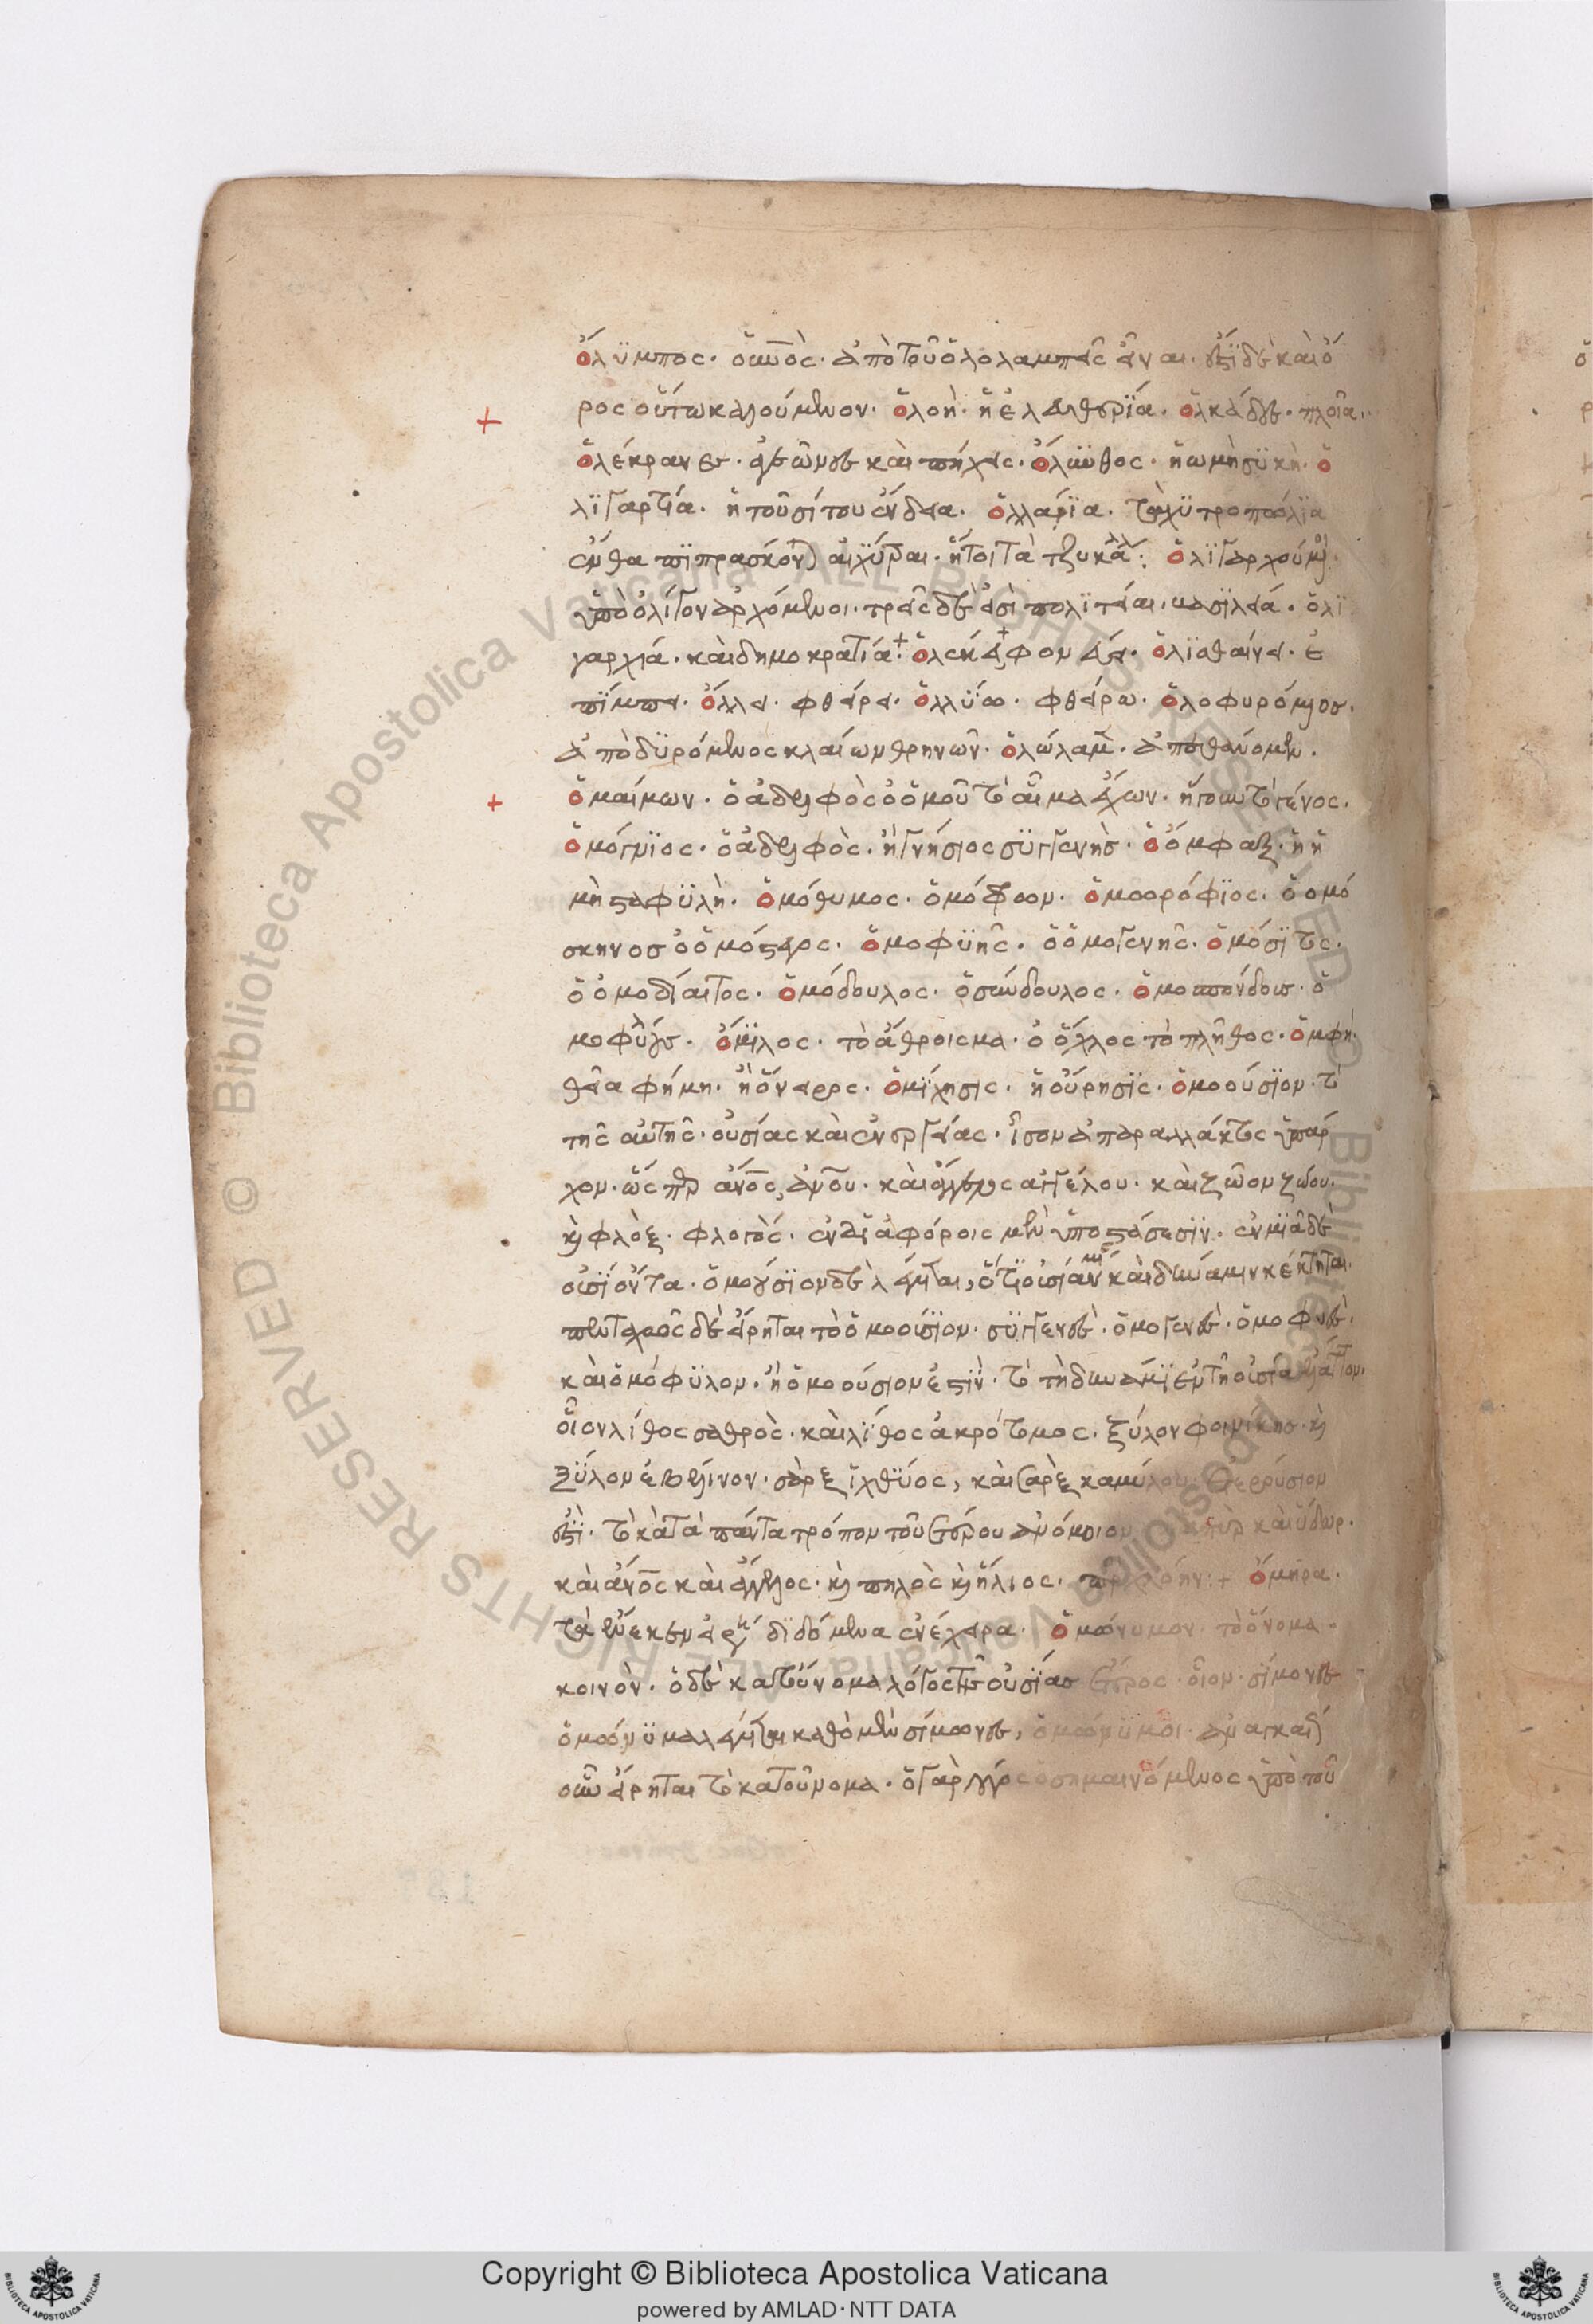 ὄλϋμπος. ὁ οὐνὸς. ἀπὸ τοῦ ὁλολαμπεῖς εἶναι. ἐστὶ δὲ καὶ ὄ
ρος οὕτω καλούμενον. ὀλοὴ. ἡ ἐλευθερΐα. ὁλκάδες. πλοῖα.
ὀλέκρανα. ἀγκῶνες καὶ πήχεις. ὄλυνθος. ἡ ὠμὴ συκὴ. ὀ
λϊγαρτία. ἡ τοῦ σίτου ἔνδεια. ὀλλαρΐα.
ἔνθα πϊπράσκον αἱ χύτραι. ἤτοι τὰ τζυκάλλ: ὀλϊγαρχούμενοι.
ὑπὸ ὀλίγον ἀρχόμενοι. τρεῖς δὲ εἰσὶ πολϊτείαι. βασϊλεία. ὀλϊ
γαρχία. καὶ δημοκρατία. ὀλϊσθαίνει. ἐ
ὄλλει. φθείρει. ὀλλΰω. φθείρω. ὀλοφυρόμενος.
ἀποδϋρόμενος κλαίων θρηνῶν. ὀλώλαμεν. ἀπεθάνομεν.
ὁμαίμων. ὁ ἀδελφὸς ὁ ὁμοῦ τὸ αἷμα ἔχων. ἤγουν τὸ γένος.
ὁμόγνϊος. ὁ ἀδελφὸς. ἢ γνήσιος συγγενὴς. ὁ ὄμφαξ. ἡ ἠ
μὴ σταφϋλὴ. ὁμόθυμος. ὁμόφρων. ὁμωρόφϊος. ὁ ὁμό
σκηνος ὁ ὁμόστεγος. ὁμοφϋῆς. ὁ ὁμογενῆς. ὁμόσϊτος.
ὁ ὁμοδίαιτος. ὁμόδουλος. ὁ σύνδουλος. ὁμοσπόνδοις. ὁ
μοφύλοις. ὅμϊλος. τὸ ἄθροισμα. ὁ ὄχλος τὸ πλῆθος. ὀμφὴ.
θεία φήμη. ἢ ὄνειρος. ὀμΐχησις. ἡ οὔρησϊς. ὁμοούσϊον. τὸ
τῆς αὐτῆς. οὐσίας καὶ ἐνεργείας. ἶσον ἀπαραλλάκτως ὑπάρ
χον. ὥσπερ ἄνος ἀνου. καὶ ἄγγελος ἀγγέλου. καὶ ζῶον ζώου.
κ φλὸξ. φλογὸς. ἐν δϊαφόροις μὲν ὑποστάσεσϊν. ἐν μϊᾶ δὲ
οὐσΐα ὄντα. ὁμοούσϊον δὲ λέγεται, ὅτϊ οὐσίαν μίαν καὶ δύναμιν κέκτηται.
πενταχῶς δὲ εἴρηται τὸ ὁμοούσϊον. συγγενὲς. ὁμογενὲς. ὁμοφυὲς.
καὶ ὁμόφϋλον. ἢ ὁμοούσιον ἐστΐν. τὸ τῆ δυνάμϊ ἐν τῆ οὐσία
οἷον λίθος σαθρὸς. καὶ λίθος ἀκρότομος. ξύλον φοινίκης. κ
ξΰλον ἐβένινον. σὰρξ ἰχθΰος, καὶ σὰρξ καμήλου. ἑτερούσιον
ἐστὶ. τὸ κατὰ πάντα τρόπον τοῦ ἑτέρου ἀνόμοιον πῦρ καὶ ὕδωρ.
καὶ ἄνος καὶ ἄγγελος. κ πηλὸς κ ἥλιος. ὅμηρα.
τὰ ἕνεκεν εἰρήν διδόμενα ἐνέχειρα. ὁμώνυμον. τὸ ὄνομα.
κοινὸν. ὁ δὲ κατ τοὔνομα λόγος τῆς οὐσίας ἕτερος. οἷον. σίμονες
ὁμώνϋμα λέγεται καθὸ μὲν σίμωνες, ὁμώνϋμοι.
οὖν εἴρηται τὸ κατ τοὔνομα. ὁ γὰρ λόγος ὁ σημαινόμενος ὑπὸ τοῦ